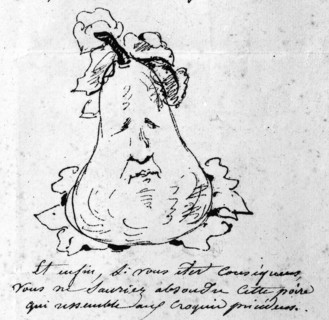 Et enfin, si vous êtes conséquens,
vous ne sauriez absoudre cette poire
qui ressemble aux croquis précédens.